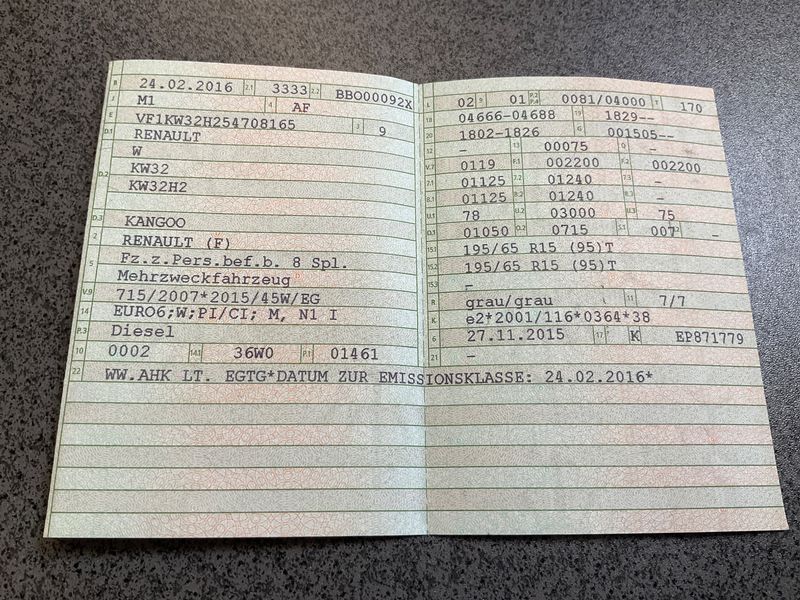 B 24.02.2016 2.1 3333 2.2 BBO00092X
J M1 4 AF
E VF1KW32H254708165 3 9
D.1 RENAULT
W
D.2 KW32
KW32H2
D.3 KANGOO
2 RENAULT (F)
5 Fz.z.Pers.bef.b. 8 Spl.
Mehrzweckfahrzeug
V.9 715/2007*2015/45W/EG
14 EURO6;W;PI/CI; M, N1 I
P.3 Diesel
10 0002 14.1 36W0 P.1 01461
L 02 9 01 P.2 P.4 0081/04000 T 170
18 04666-04688 19 1829--
20 1802-1826 G 001505--
12 - 13 00075 Q -
V.7 0119 F.1 002200 F.2 002200
7.1 01125 7.2 01240 7.3 -
8.1 01125 8.2 01240 8.3 -
U.1 78 U.2 03000 U.3 75
O.1 01050 O.2 0715 S.1 007 S.2 -
15.1 195/65 R15 (95)T
15.2 195/65 R15 (95)T
15.3 -
R grau/grau 11 7/7
K e2*2001/116*0364*38
6 27.11.2015 17 K EP871779
21 -
22 WW.AHK LT. EGTG*DATUM ZUR EMISSIONSKLASSE: 24.02.2016*